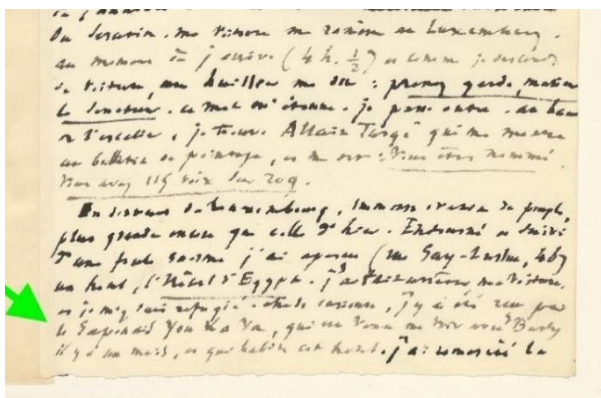 du scrutin. ma voiture me ramène au Luxembourg.
au moment où j'écris (4 h. ½) et comme je descends
de voiture, un huissier me dit : prenez garde, monsieur
le sénateur. ce mot m'étonne. je passe outre. au haut
de l'escalier, je trouve Allain Targé qui me montre
un bulletin de pointage, et me dit : Vous êtes nommé.
Vous avez 115 voix sur 209.
En sortant du Luxembourg, immense ovation du peuple,
plus grande encore que celle d'hier. Entouré et suivi
d'une foule énorme j'ai aperçu (rue Gay-Lussac,
un hôtel, l'Hôtel d'Egypte. j'ai fait arrêter ma voiture,
et je m'y suis réfugié. chose curieuse, j'y ai été reçu par
le Japonais You Ka Va, qui est venu me voir avec Burty
il y a un mois, et qui habite cet hôtel. j'ai remercié le